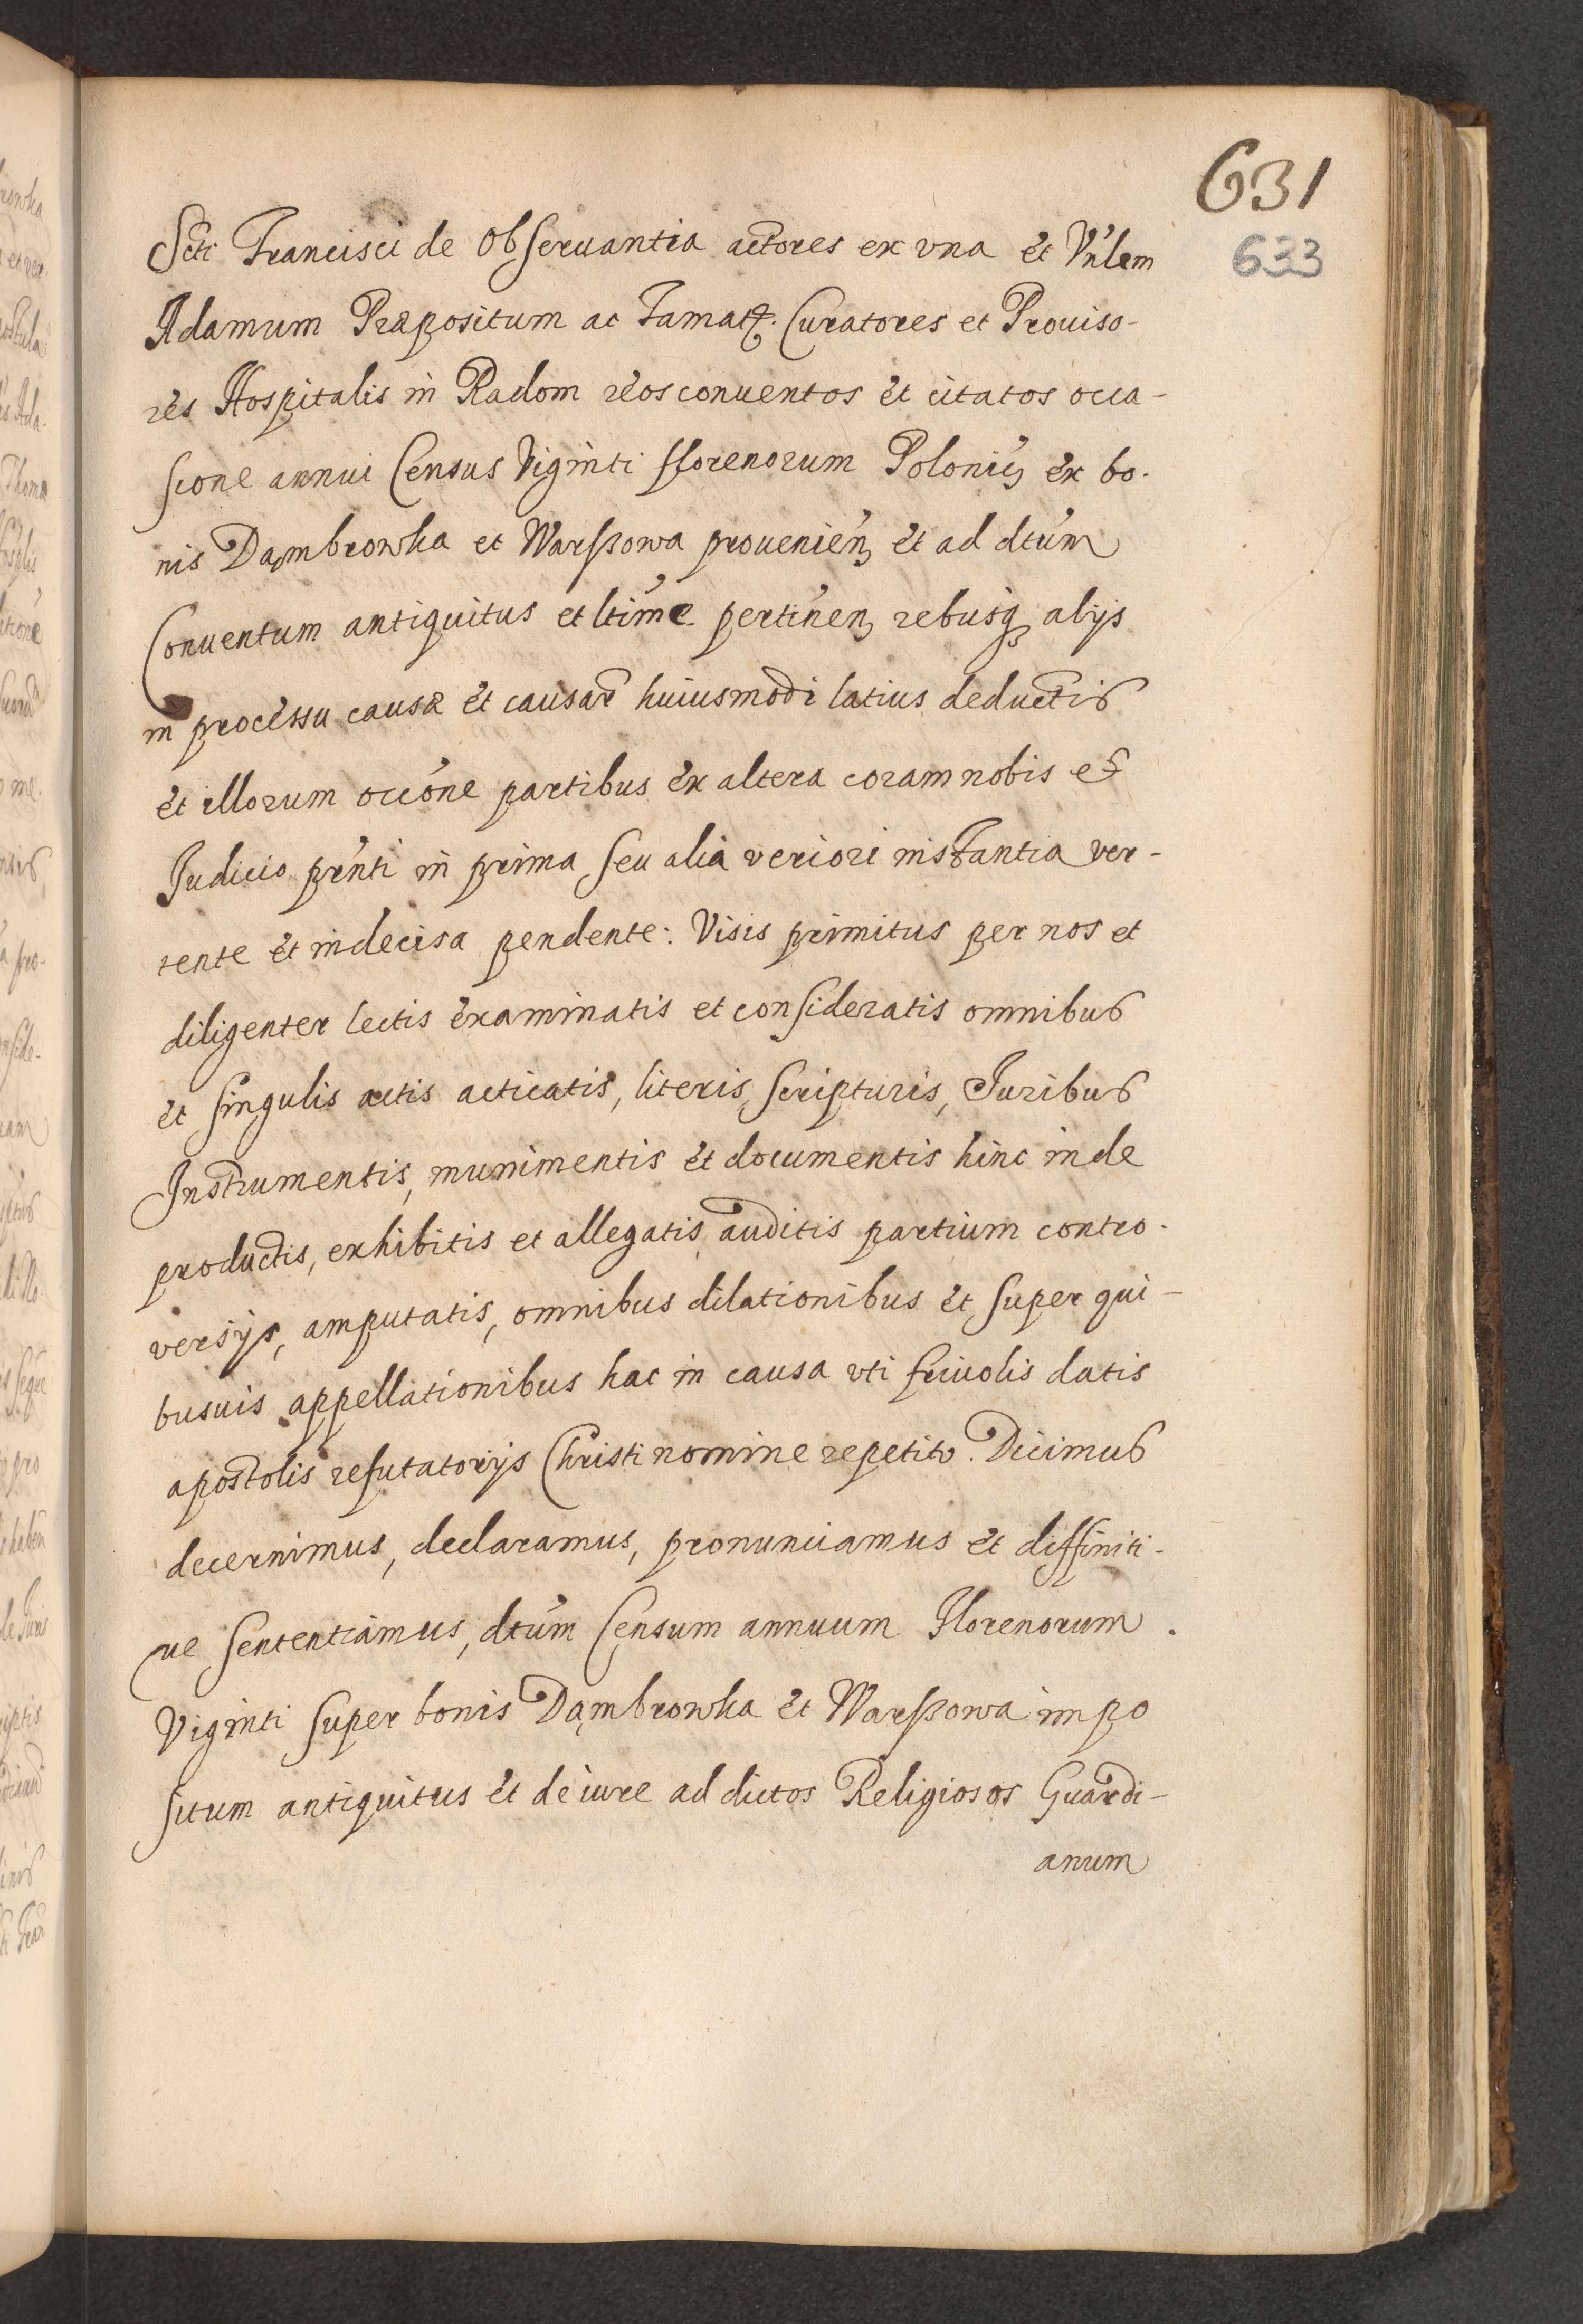 631
633
Scti Francisci de Obseruantia actores ex vna et Vnlem
Adamum Præpositum ac Famatꝫ. Curatores et Prouiso-
res Hospitalis in Radom reos conuentos et citatos occa-
sione annui Census Viginti fflorenorum Poloniꝫ ex bo-
nis Dąmbrowka et Warszowa prouenienꝫ et ad dtum
Conuentum antiquitus et ltime pertinenꝫ rebusqꝫ alijs
in processu causæ et causar̃ huiusmodi latius deductis
et illorum occone partibus ex altera coram nobis et
Judicio prnti in prima seu alia veriori instantia ver-
tente et indecisa pendente: Visis primitus per nos et
diligenter lectis examinatis et consideratis omnibus
et singulis actis acticatis, literis, scripturis, Juribus
Instrumentis, munimentis et documentis hinc inde
productis, exhibitis et allegatis, auditis partium contro-
versijs, amputatis, omnibus dilationibus et super qui-
busuis appellationibus hac in causa vti friuolis datis
apostolis refutatorijs Christi nomine repetito. Dicimus
decernimus, declaramus, pronunciamus et diffiniti-
ue sententiamus, dtum Censum annuum Florenorum
Viginti super bonis Dąmbrowka et Warszowa impo
situm antiquitus et de iure ad dictos Religiosos Guardi-
anum